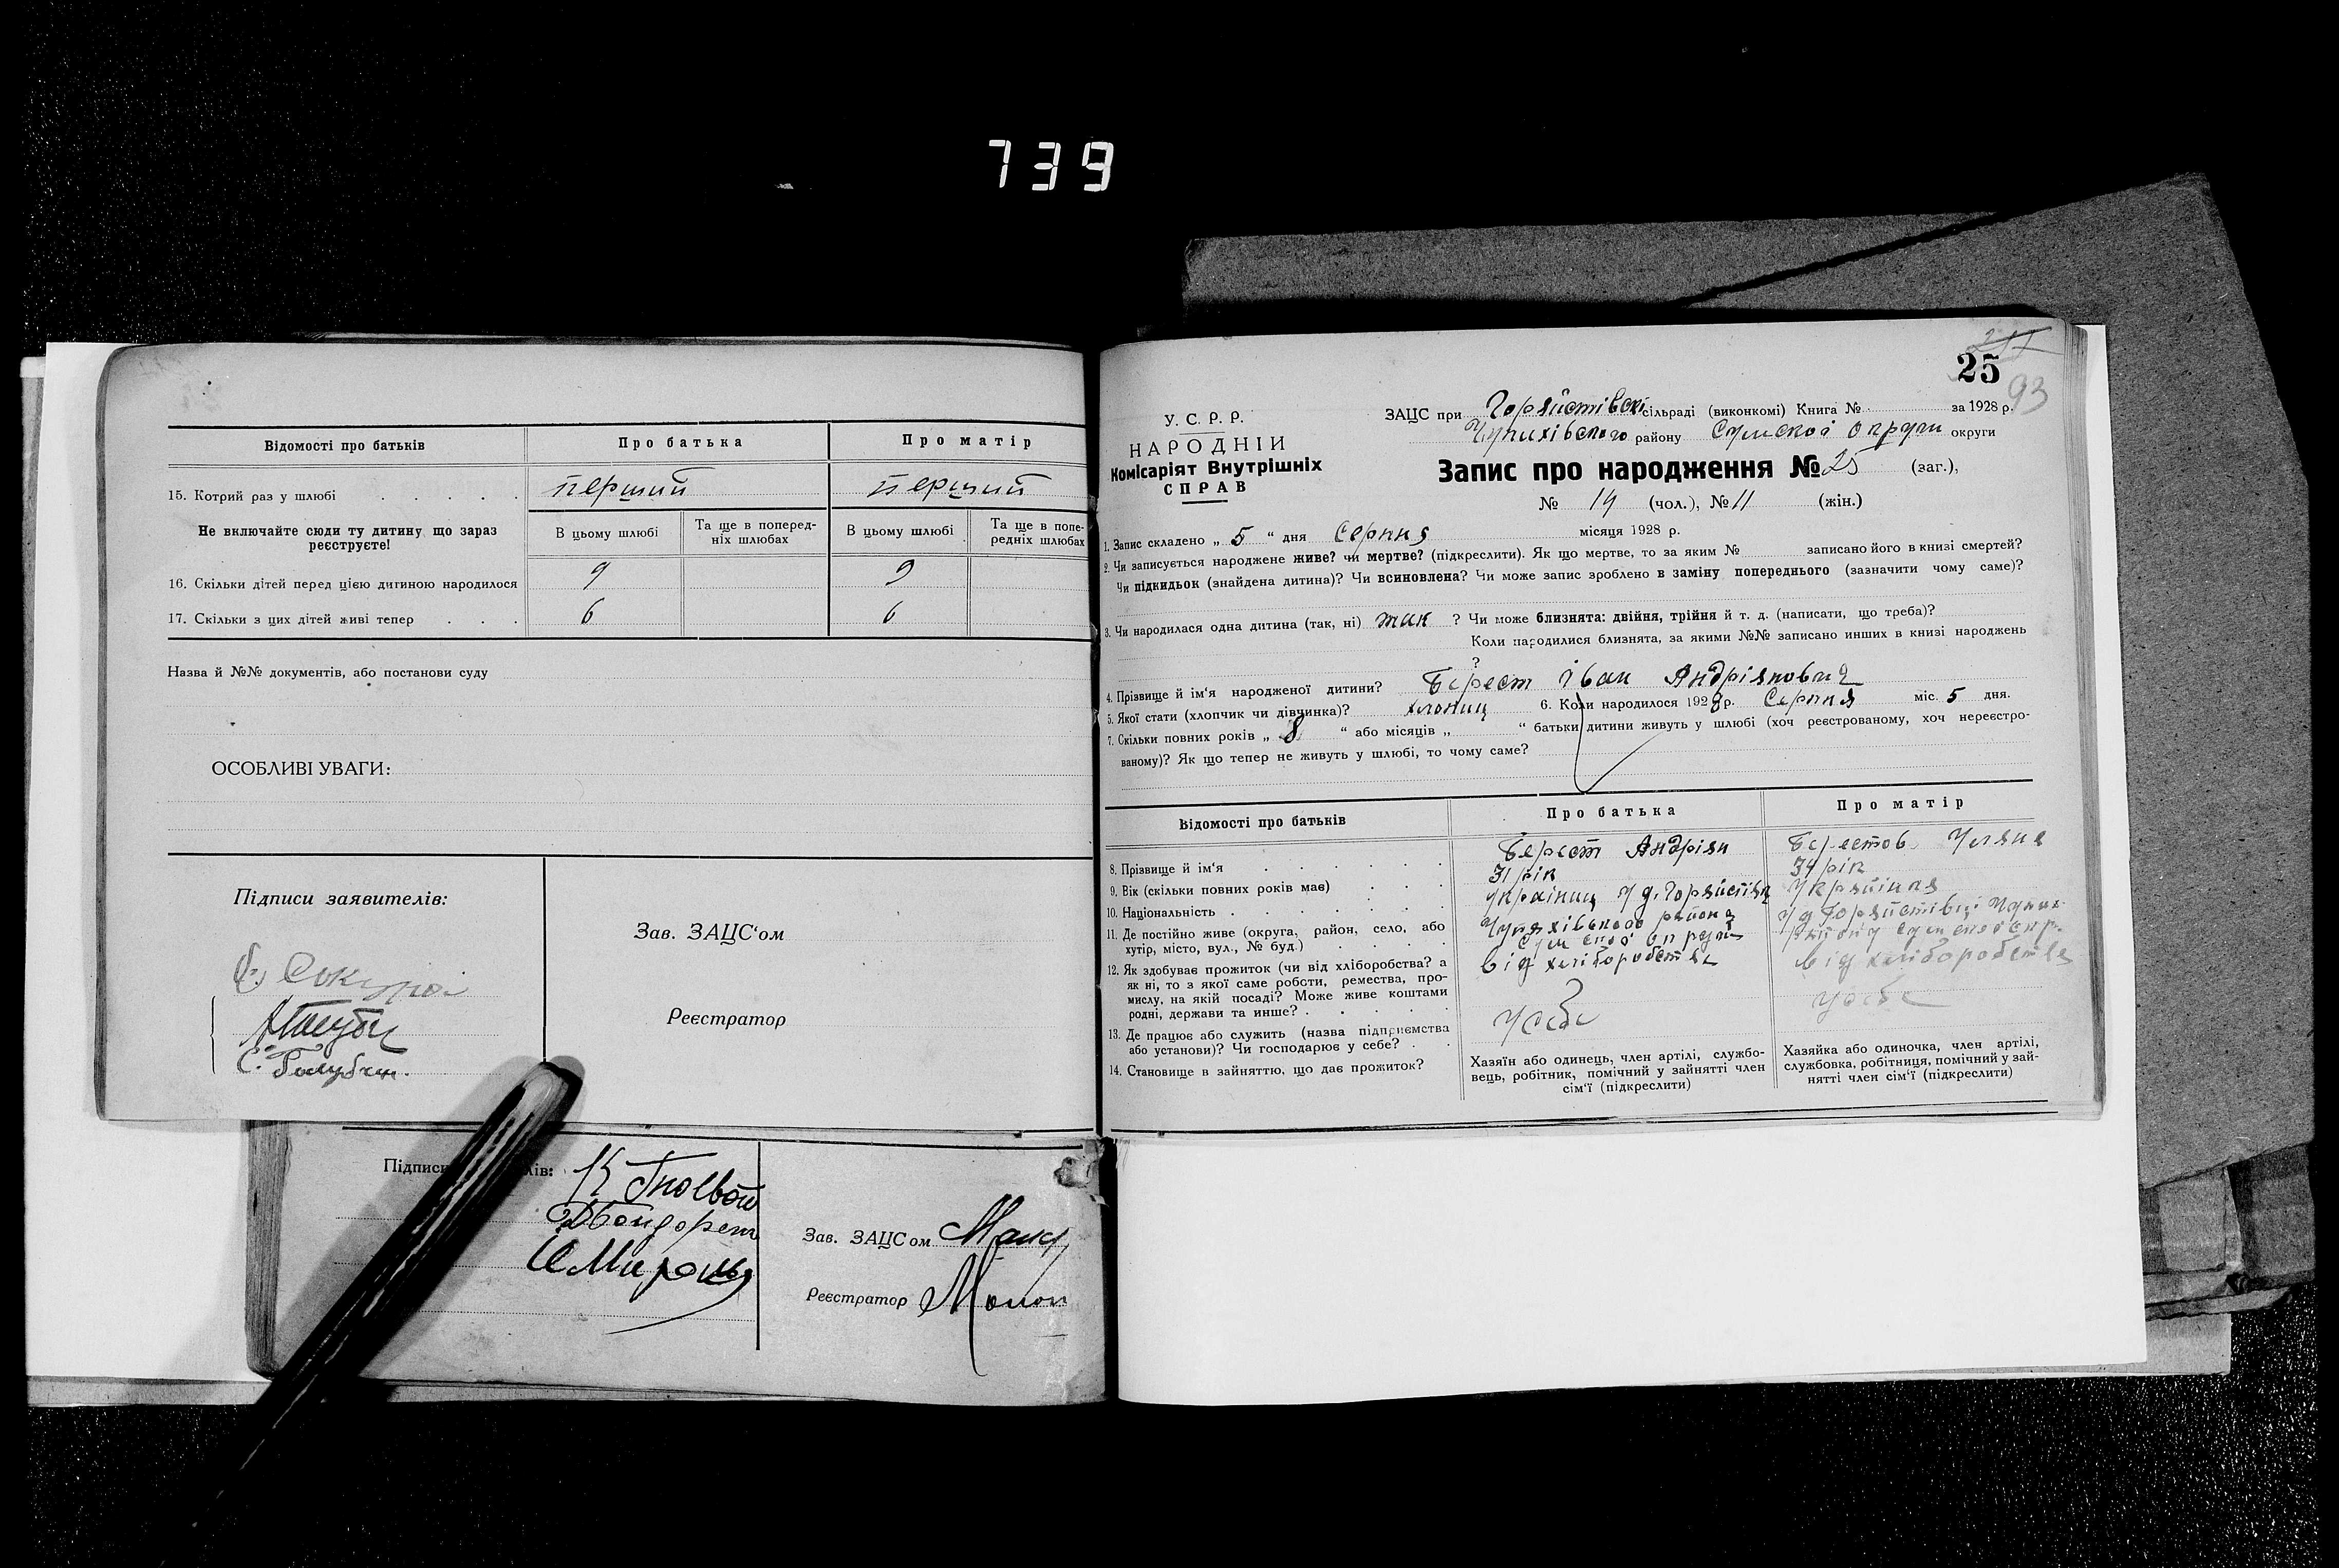 739
Відомості про батьків Про батька Про матір
15. Котрий раз у шлюбі перший перший
Не включайте сюди ту дитину, що зараз реєструєте!
В цьому шлюбі Та ще в поперед-ніх шлюбах В цьому шлюбі Та ще в попе-редніх шлюбах
16. Скільки дітей перед цією дитиною народилося 9 9
17. Скільки з цих дітей живі тепер 6 6
Назва й №№ документів, або постанови суду
ОСОБЛИВІ УВАГИ:
Підписи заявителів:
Зав. ЗАЦС‘ом
Реєстратор
Підписи лів:
Зав. ЗАЦСом
Реєстратор
25
93
У. С. Р. Р.
НАРОДНІЙ
Комісаріят Внутрішніх
СПРАВ
ЗАЦС при сільраді (виконкомі) Книга № за 1928 р.
району Сумської округи округи
Запис про народження № 25 (заг.),
№ 14 (чол.), № 11 (жін.)
1. Запис складено „ 5 “ дня Серпня місяця 1928 р.
2. Чи записується народжене живе? чи мертве? (підкреслити). Як що мертве, то за яким № записано його в книзі смертей?
Чи підкидьок (знайдена дитина)? Чи всиновлена? Чи може запис зроблено в заміну попереднього (зазначити чому саме)?
3. Чи народилася одна дитина (так, ні) так ? Чи може близнята: двійня, трійня й т. д. (написати, що треба)?
Коли народилися близнята, за якими №№ записано инших в книзі народжень
?
4. Прізвище й ім‘я народженої дитини? Берест Іван Андріянович
5. Якої стати (хлопчик чи дівчинка)? хлопиц 6. Коли народилося 1928 р. Серпня міс. 5 дня.
7. Скільки повних років „ 8 “ або місяців „ “ батьки дитини живуть у шлюбі (хоч реєстрованому, хоч нереєстро-
ваному)? Як що тепер не живуть у шлюбі, то чому саме?
Відомості про батьків Про батька Про матір
8. Прізвище й ім‘я Берест Андріян Берестов Уляна
9. Вік (скільки повних років має) 31 рік 34 рік
10. Національність
11. Де постійно живе (округа, район, село, або
хутір, місто, вул., № буд.)
12. Як здобуває прожиток (чи від хліборобства? а від хліборобства від хліборобства
як ні, то з якої саме роботи, ремества, про-
мислу, на якій посаді? Може живе коштами
родні, держави та инше?
13. Де працює або служить (назва підприємства
або установи)? Чи господарює у себе? У себе у себе
14. Становище в зайняттю, що дає прожиток?
Хазяїн або одинець, член артілі, службо-
вець, робітник, помічний у зайнятті член
сім‘ї (підкреслити)
Хазяйка або одиночка, член артілі,
службовка, робітниця, помічний у зай-
нятті член сім‘ї (підкреслити)